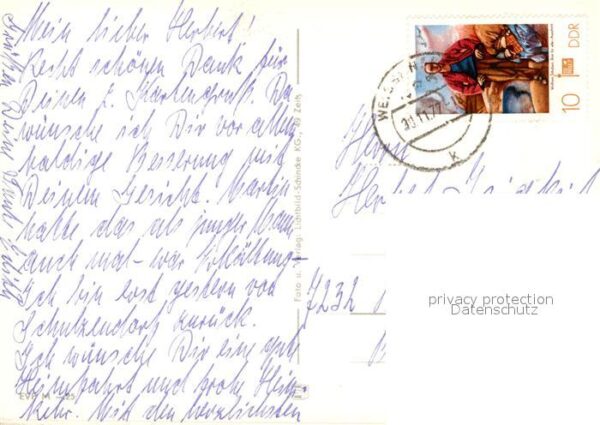 Mein lieber Herbert!
Recht schönen Dank für
Deinen 2. Kartengruß. Da
wünsche ich Dir vor allem
baldige Besserung mit
Deinem Gesicht. Martin
hatte das als junger Mann
auch mal - war Erkältung -
Ich bin erst gestern von
Schulzendorf zurück.
Ich wünsche Dir eine gute
Heimfahrt und frohe Heim-
kehr. Mit den herzlichsten
Grüßen Deine
Foto u. Verlag: Lichtbild-Schincke KG., 49 Zeitz
EVP M -,25
DDR
10
30.11.77
k
Herrn
Herbert
7232
privacy protection
Datenschutz